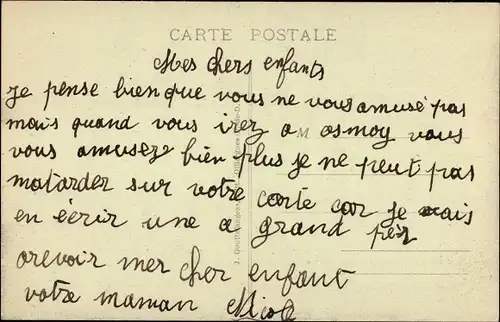 CARTE POSTALE
Mes chers enfants
je pense bien que vous ne vous amusé pas
mais quand vous irez a osmoy vous
vous amusez bien plus je ne peut pas
matarder sur votre carte car je vais
en écrir une a grand pèr
orevoir mer cher enfant
votre maman